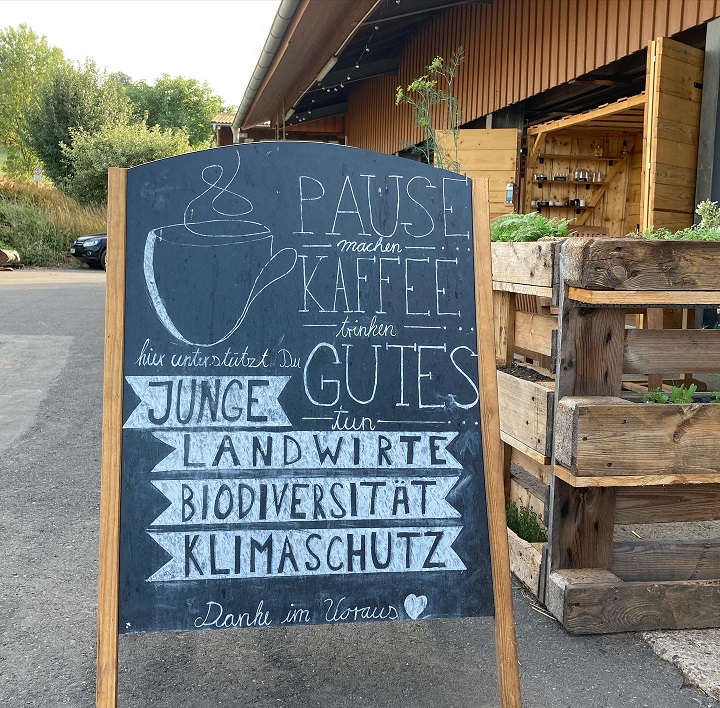 PAUSE
machen
KAFFEE...
trinken
GUTES
...tun...
hier unterstützt Du
JUNGE
LANDWIRTE
BIODIVERSITÄT
KLIMASCHUTZ
Danke im Voraus